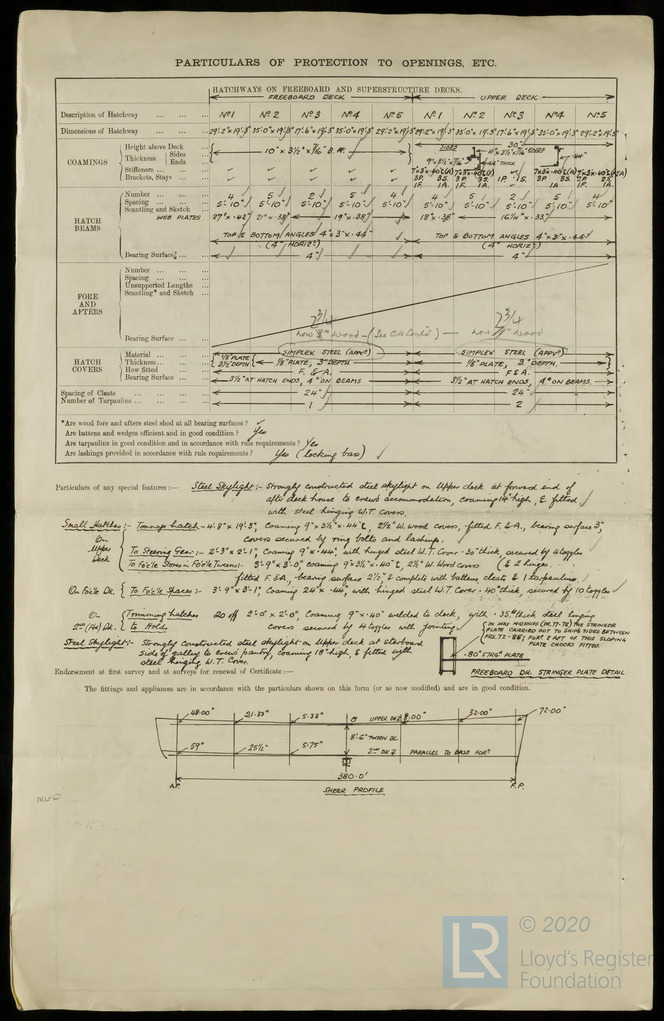 PARTICULARS OF PROTECTION TO OPENINGS, ETC.
HATCHWAYS ON FREEBOARD AND SUPERSTRUCTURE DECKS.
FREEBOARD DECK UPPER DECK
Description of Hatchway ... ... Nº1 Nº2 Nº3 Nº4 Nº5 Nº1 Nº2 Nº3 Nº4 Nº5
Dimensions of Hatchway ... ... 29'-2"x19'-3" 35'-0"x19'-3" 17'-6"x19'-3" 35'-0"x19'-3" 29'-2"x19'-3" 29'-2"x19'-3" 35'-0"x19'-3" 17'-6"x19'-3" 35'-0"x19'-3" 29'-2"x19'-3"
COAMINGS
Height above Deck ... 30"
Thickness Sides ... Ends ... 10" x 3½" x 7/16" B.A. SIDES ENDS
Stiffeners ... ...
Brackets, Stays ...
HATCH BEAMS
Number ... ... ... 4 5 2 5 4 4 5 2 5 4
Spacing ... ... ... 5'-10" 5'-10" 5'-10" 5'-10" 5'-10" 5'-10" 5'-10" 5'-10" 5'-10" 5'-10"
Scantling and Sketch
WEB PLATES 27" x .42" 21" x .38" 19" x .38" 18" x .38" 16¼" x .33"
TOP & BOTTOM ANGLES 4" x 3" x .44" TOP & BOTTOM ANGLES 4" x 3" x .44"
(4" HORIZ) (4" HORIZ)
Bearing Surface* ... ... 4" 4"
FORE AND AFTERS
Number ... ... ...
Spacing ... ... ...
Unsupported Lengths
Scantling* and Sketch
2¾ 2¾
now wood now wood
Bearing Surface ... ...
HATCH COVERS
Material ... ... ... SIMPLEX STEEL (APPD) SIMPLEX STEEL (APPD)
Thickness ... ... ... 1/8" PLATE 3½" DEPTH 1/8" PLATE, 3" DEPTH 1/8" PLATE, 3" DEPTH.
How fitted ... ... F. & A. F & A.
Bearing Surface ... ... 3½" AT HATCH ENDS, 4" ON BEAMS 3½" AT HATCH ENDS, 4" ON BEAMS.
Spacing of Cleats ... ... ... 24" 24"
Number of Tarpaulins ... ... ... 1 2
*Are wood fore and afters steel shod at all bearing surfaces?
Are battens and wedges efficient and in good condition? Yes
Are tarpaulins in good condition and in accordance with rule requirements? Yes
Are lashings provided in accordance with rule requirements? Yes (locking bars)
Particulars of any special features:— Steel Skylight:- Strongly constructed steel skylight on Upper deck at forward end of
aft deck house to crews accommodation, coaming 14" high, & fitted
with steel hinging W.T. Covers.
Small Hatches:- Tonnage hatch - 4'-8" x 19'-3", Coaming 9" x 3½" x .44" , 2½" W. wood covers, fitted F. & A., bearing surface 3",
On Upper Deck
covers secured by ring bolts and lashings.
To Steering Gear:- 2'-3" x 2'-1", Coaming 9" x .44", with hinged steel W.T. Cover .30" thick, secured by 4 toggles
To Fo'c'le Stores in Fo'c'le Tweens:- 3'-9" x 3'-0", coaming 9" x 3½" x .40" , 2½" W. Wood covers (& 2 hinges
fitted F. & A., bearing surface 2½" & complete with battens, cleats & 1 tarpaulins
On Fo'c'le Dk. To Fo'c'le Spaces:- 3'-9" x 3'-1", Coaming 24" x .44", with hinged steel W.T. Cover .40" thick, secured by 10 toggles
On 2nd (Fbd) Dk. Trimming hatches to Holds 20 off 2'-0" x 2'-0", Coaming 9" x .40" welded to deck, with .35" thick steel hinging
covers secured by 4 toggles with jointing
(IN WAY MIDSHIPS (FRS. 77-78) THE STRINGER
PLATE CARRIED OUT TO SHIPS SIDES BETWEEN
FRS. 72-88, FOR'D & AFT OF THIS SLOPING
PLATE CHOCKS FITTED.
Steel Skylight:- Strongly constructed steel skylight on Upper deck at starboard
side of galley to crews' pantry, coaming 18" high, & fitted with
steel hinging W.T. Cover.
.80" STRG PLATE
FREEBOARD DK. STRINGER PLATE DETAIL
Endorsement at first survey and at surveys for renewal of Certificate:—
The fittings and appliances are in accordance with the particulars shown on this form (or as now modified) and are in good condition.
48.00" 21.33" 5.38" UPPER DK 8.00" 32.00" 72.00"
8'-6" TWEEN DK.
59" 25½" 5.75" 2ND DK PARALLEL TO BASE FOR'D
380.0'
A.P. F.P.
SHEER PROFILE
© 2020
LR
Lloyd's Register
Foundation